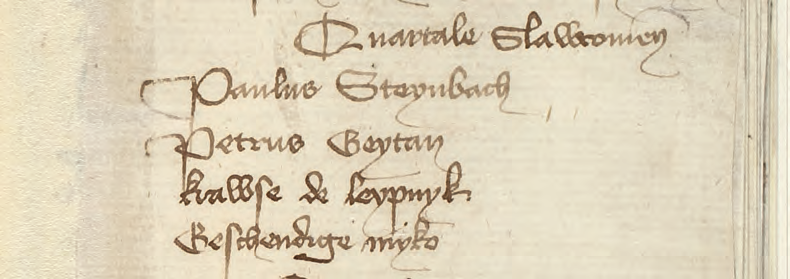 Quartale Slawconien
Paulus Steynbach
Petrus Geytan
krawse de leypnyk
Geschendige myko